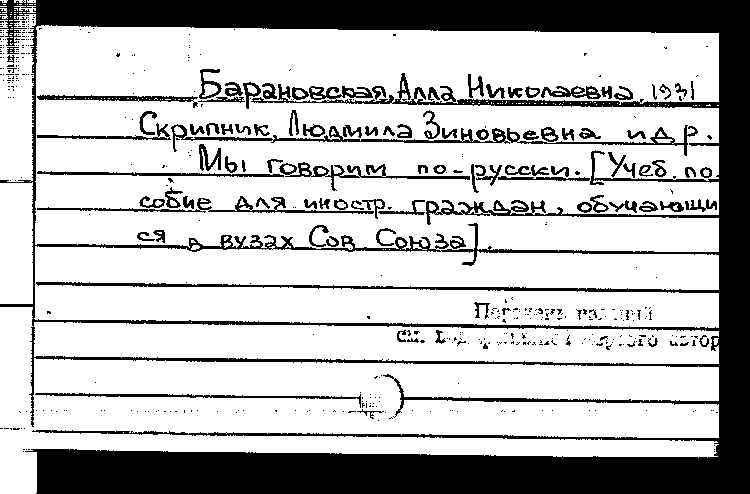 Барановская, Алла Николаевна, 1931
Скрипник, Людмила Зиновьевна и др.
Мы говорим по-русски. [Учеб. по-
собие для иностр. граждан, обучающи
ся в вузах Сов Союза].
Перечень изданий
см. автор